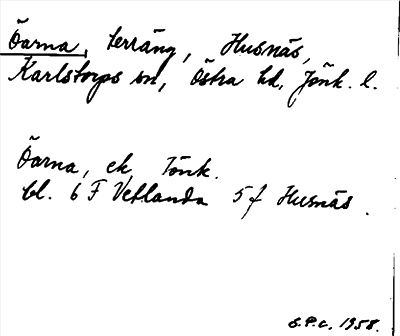 Öarna, terräng, Husnäs,
Karlstorps sn, Östra hd, Jönk. l.
Öarna, ek. Tönk.
bl. 6 F Vetlanda 5 f Husnäs.
S.P.c. 1958.